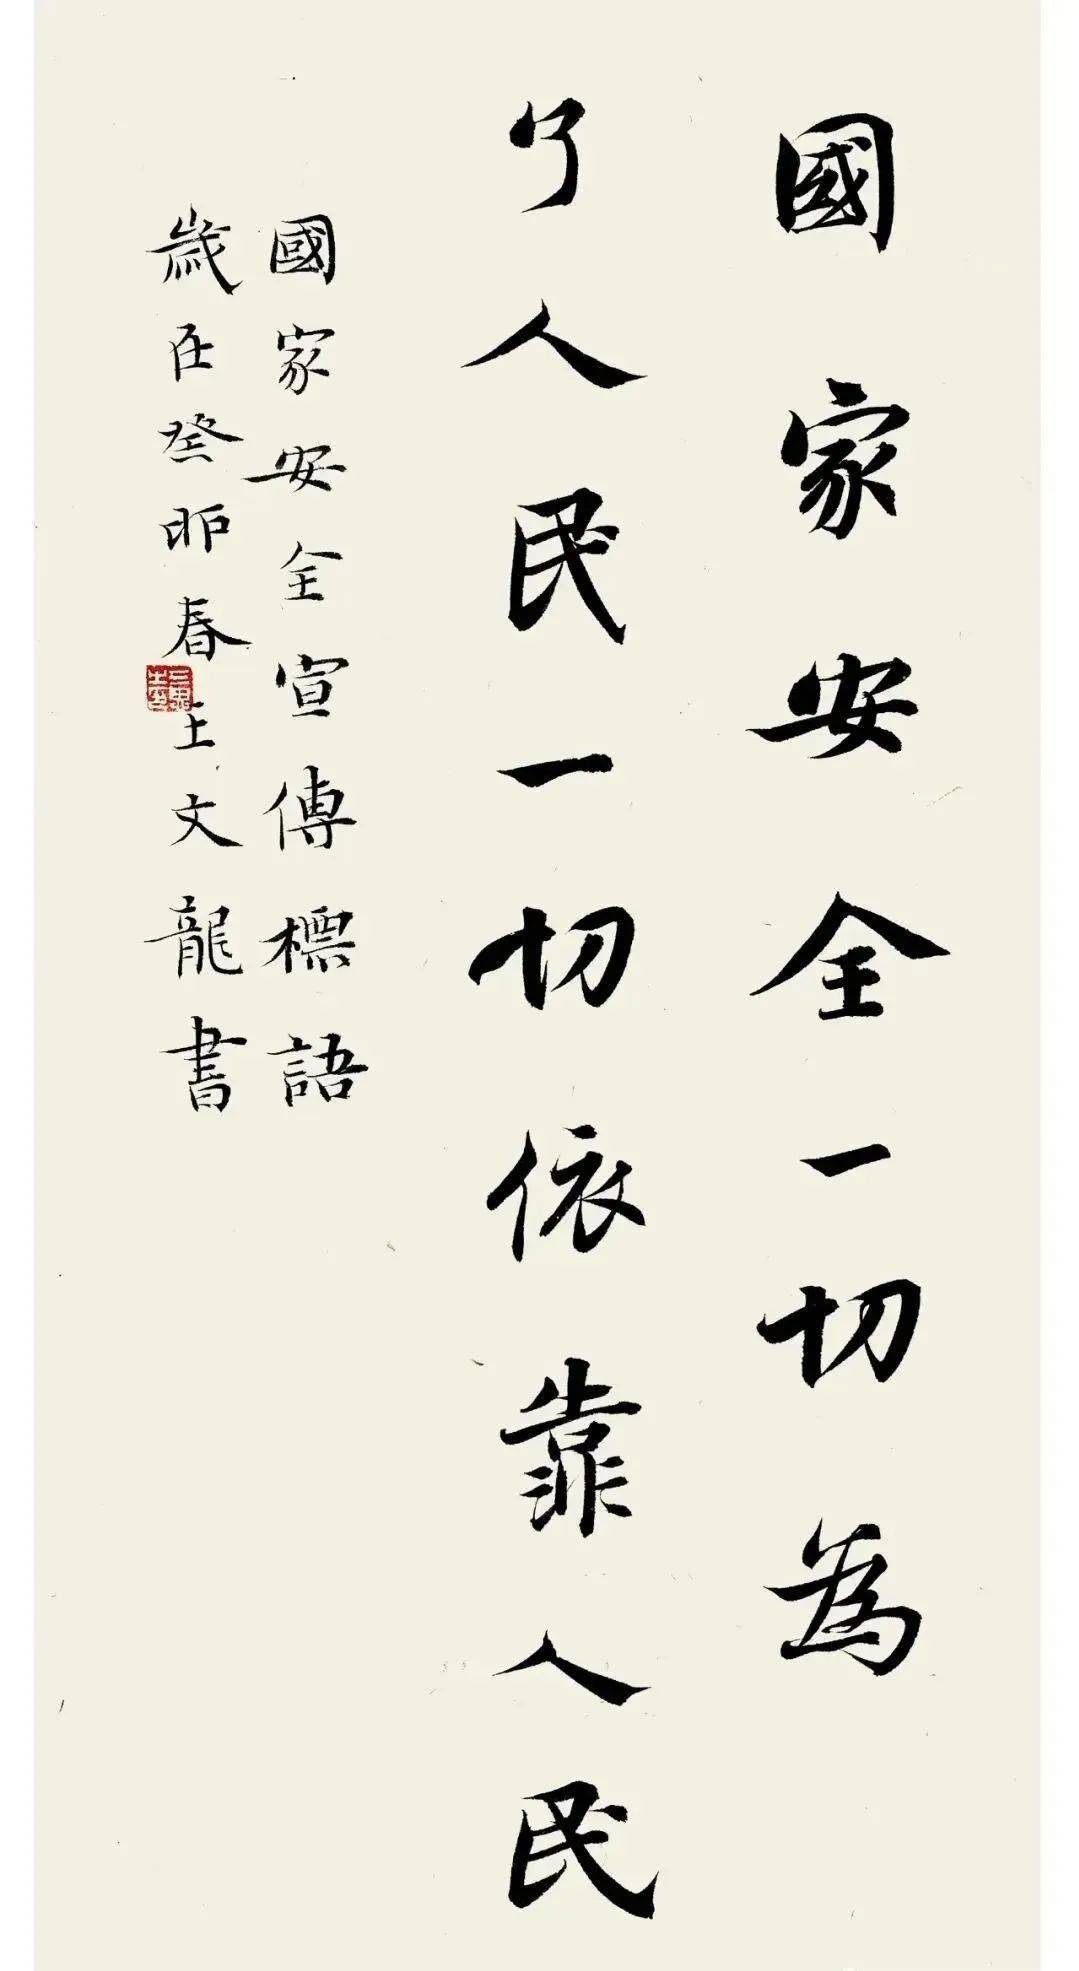 國家安全一切為
了人民一切依靠人民
國家安全宣傳標語
歲在癸卯春上文龍書